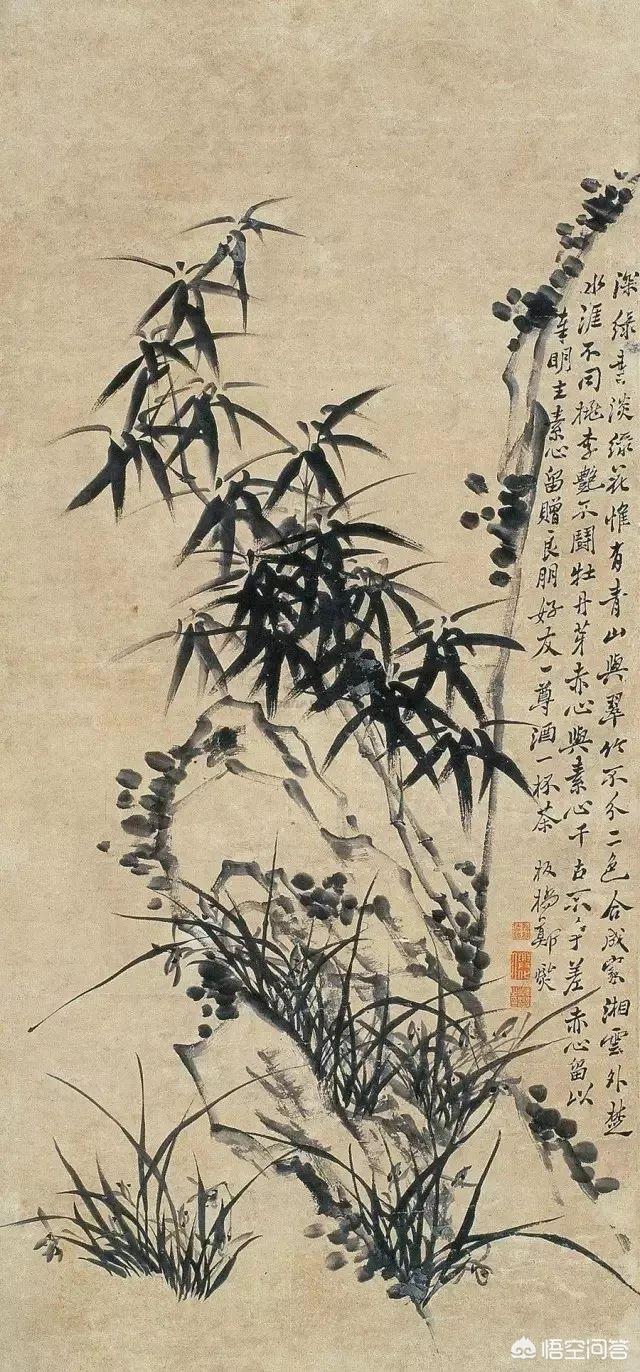 深綠葉淡綠花惟有青山與翠竹不分二色合成家湘雲外楚
水涯不同桃李艷不鬪牡丹芽赤心與素心千古不爭差赤心留以
奉明主素心留贈良朋好友一尊酒一杯茶 板橋鄭燮
悟空问答